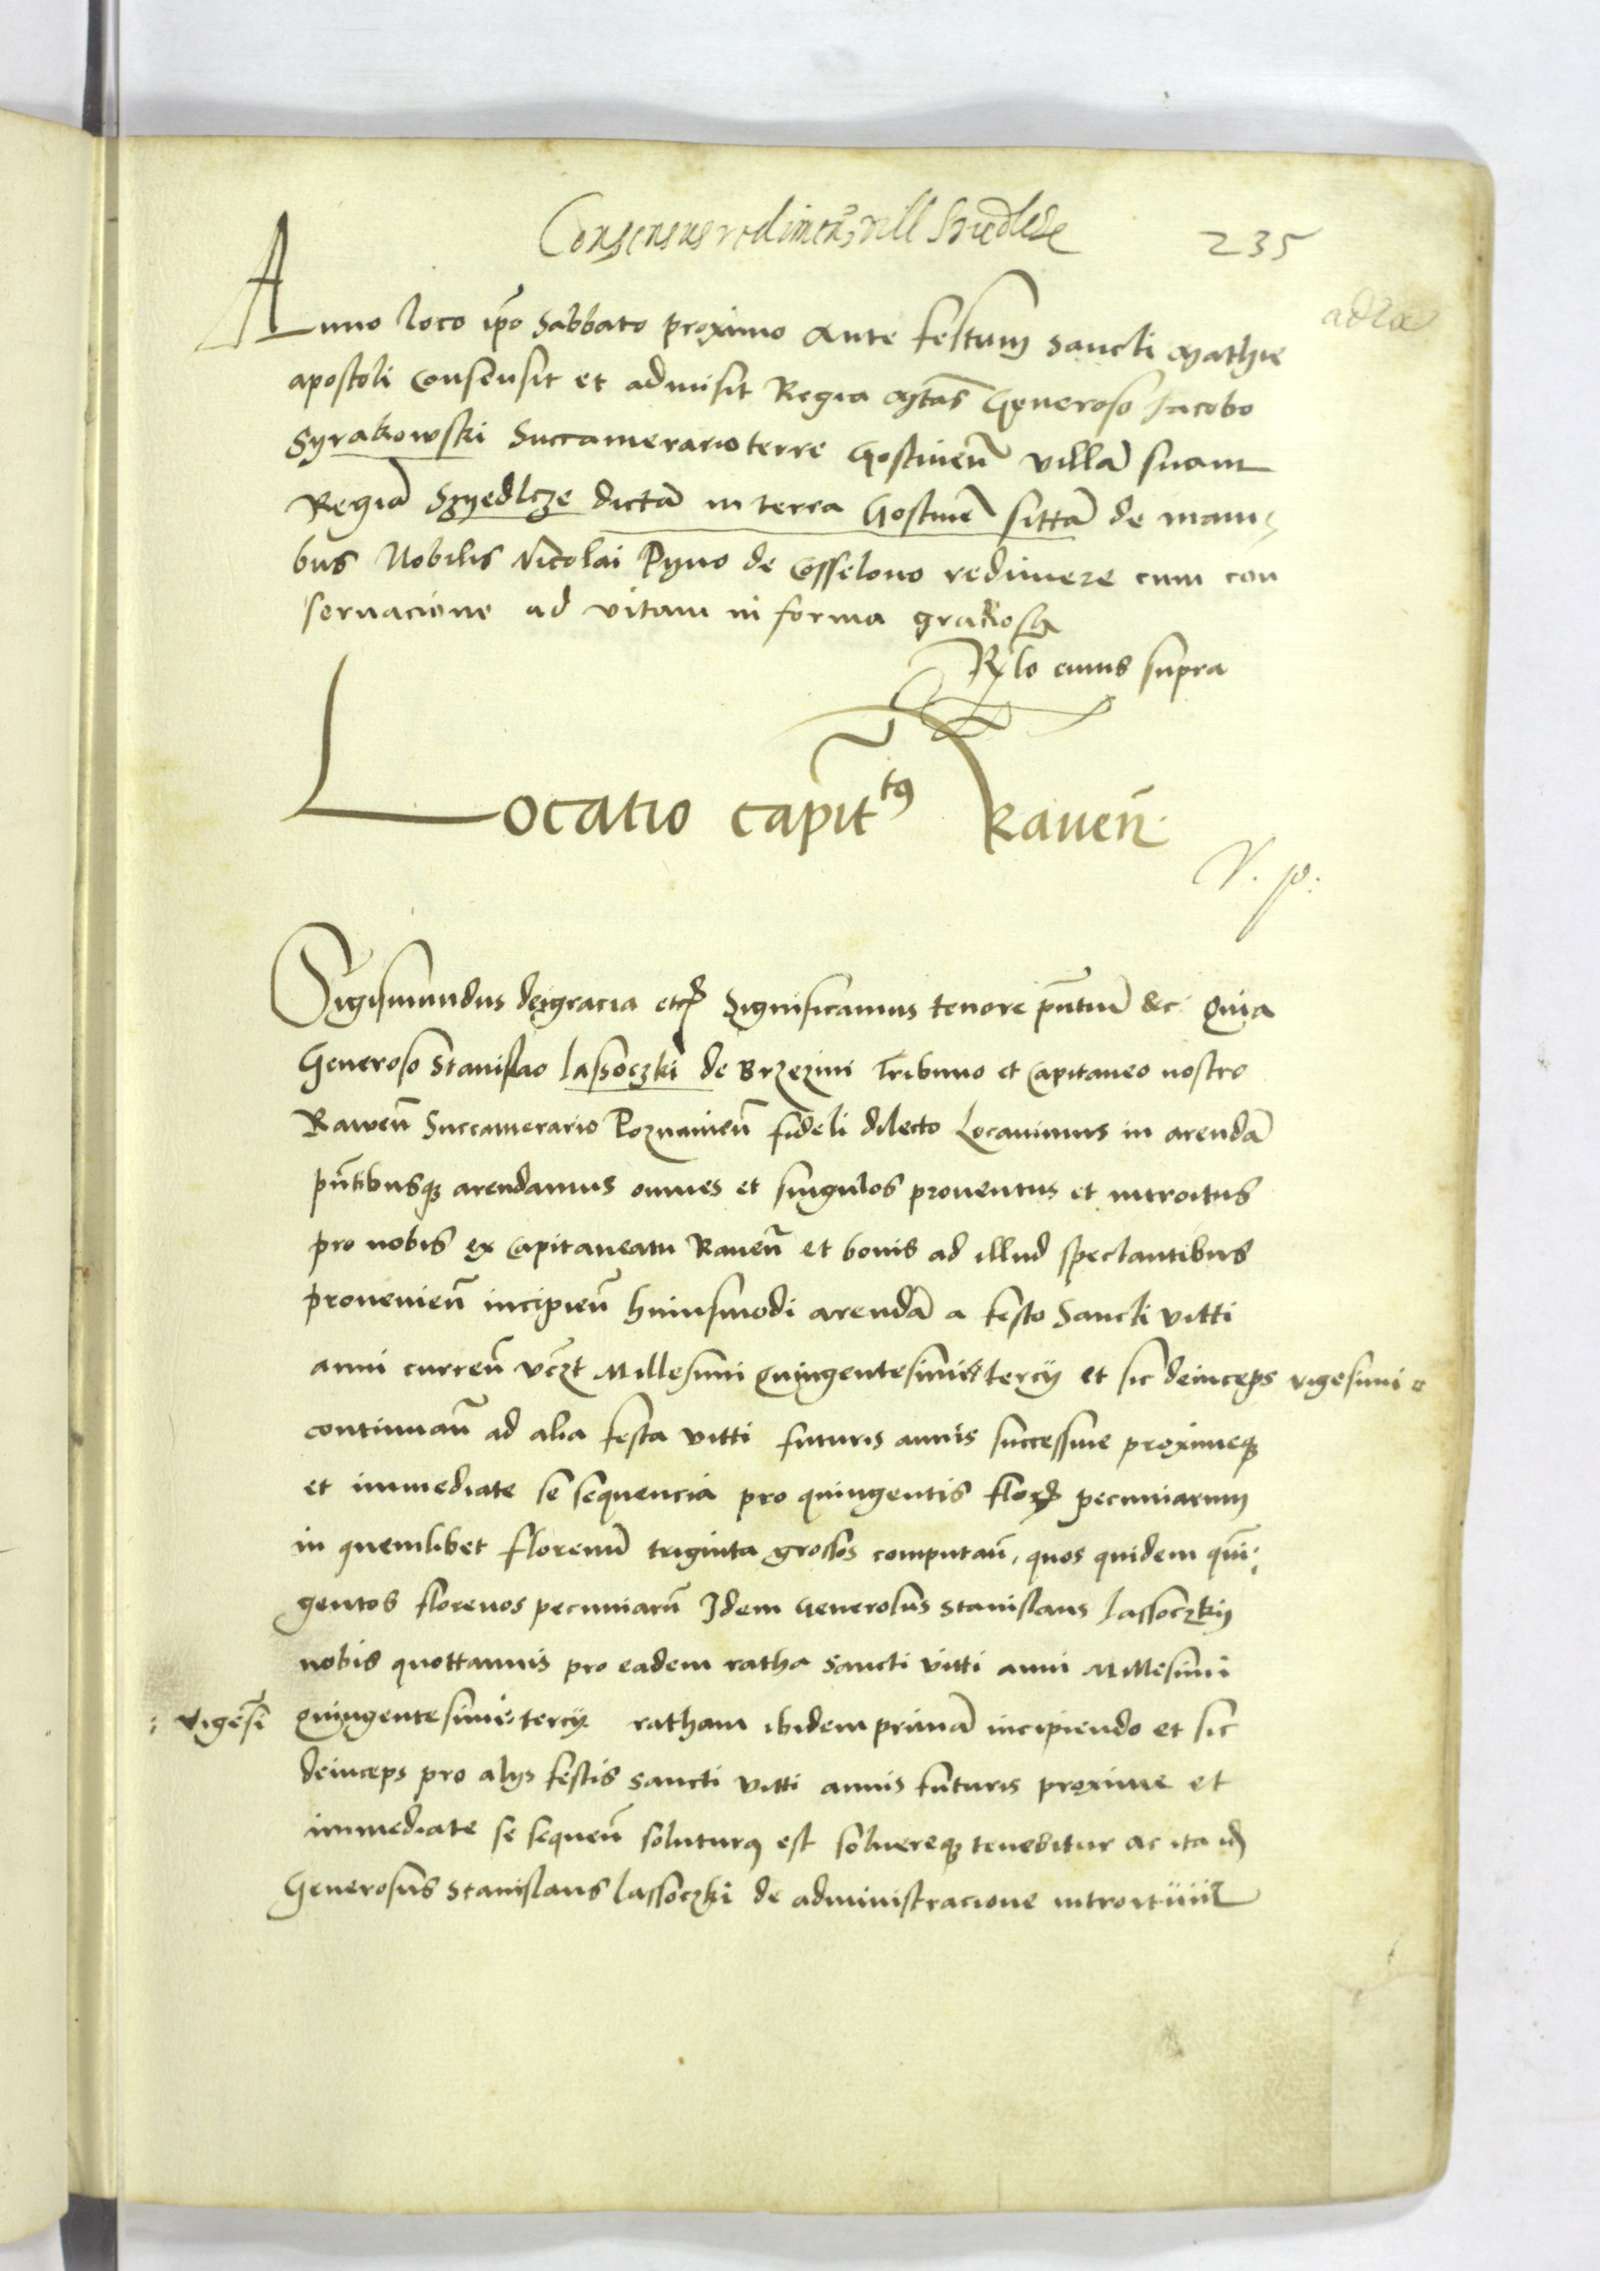 Consensus redimen̄ vill Siedlcze
235
Anno loco ip̄o Sabbato proximo Ante festum Sancti Mathie
apostoli Consensit et admisit Regia M̄tas Generoso Jacobo
Syrakowski Succamerario terre Gostinen̄ villā suam
Regiā Szyedlcze dictā in terra Gostinen̄ sittā de mani
bus Nobilis Nicolai Pyno de redimere cum con
servacione ad vitam in forma graciosa
R̄lo cuius supra
Locatio capit^tus Raven̄
V. p:
Sigismundus dei gracia etc̄ Significamus tenore p̄ntiū &c Quia
Generoso Stanislao Lassoczki de Brzezini Tribuno et Capitaneo nostro
Rawen̄ Succamerario Poznanien̄ fideli dilecto Locavimus in arendā
p̄ntibusq3 arendamus omnes et singulos proventus et introitus
pro nobis ex Capitaneatu Raven̄ et bonis ad illud spectantibus
provenien̄ incipien̄ huiusmodi arendā a festo Sancti Vitti
anni curren̄ vcz̄t Millesimi Quingentesimi tercij et sic deinceps vigesimi
continuan̄ ad alia festa vitti futuris annis successive proximeq3
et immediate se sequencia pro quingentis flor̄ pecuniarum
in quemlibet florenū triginta grossos computan̄, quos quidem quī
gentos florenos pecuniarū Idem Generosus Stanislaus Lassoczkij
nobis quottannis pro eadem ratha Sancti vitti anni Millesimi
: vigesī Quingentesimi tercij ratham ibidem primā incipiendo et sic
deinceps pro alijs festis sancti vitti annis futuris proxime et
immediate se sequen̄ soluturus est solvereq3 tenebitur ac ita id̄
Generosus Stanislaus Lassoczki de administracione introituū